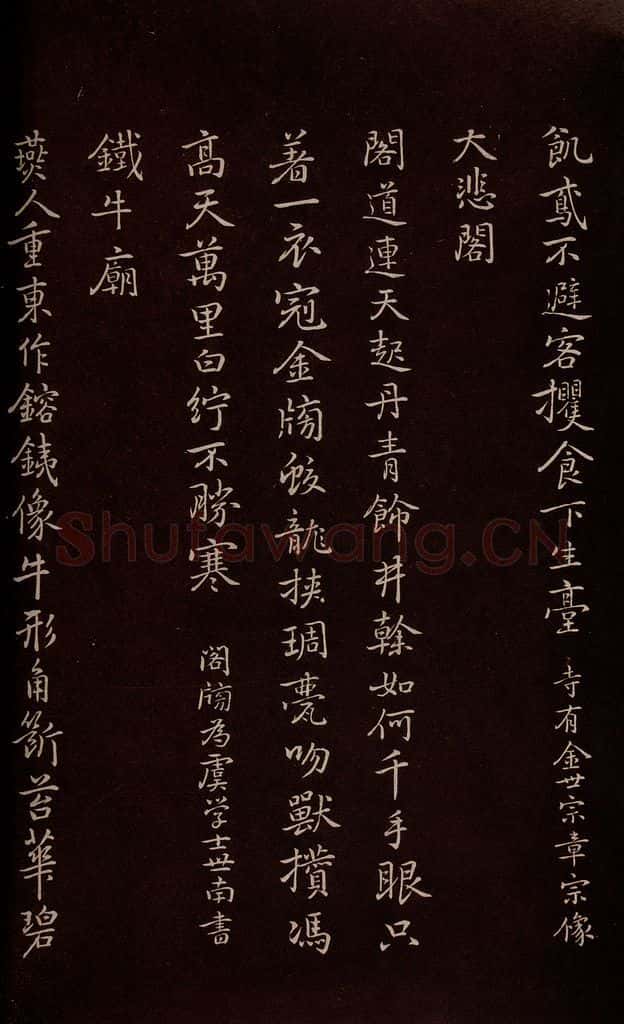 飢鳶不避客攫食下生臺 寺有金世宗章宗像
大悲閣
閣道連天起丹青飾井榦如何千手眼只
著一衣冠金牓蛟龍挾琱甍吻獸攢馮
高天萬里白紵不勝寒 閣牓為虞学士世南書
鐵牛廟
燕人重東作鎔銕像牛形角斷苔華碧
Shufawang.CN